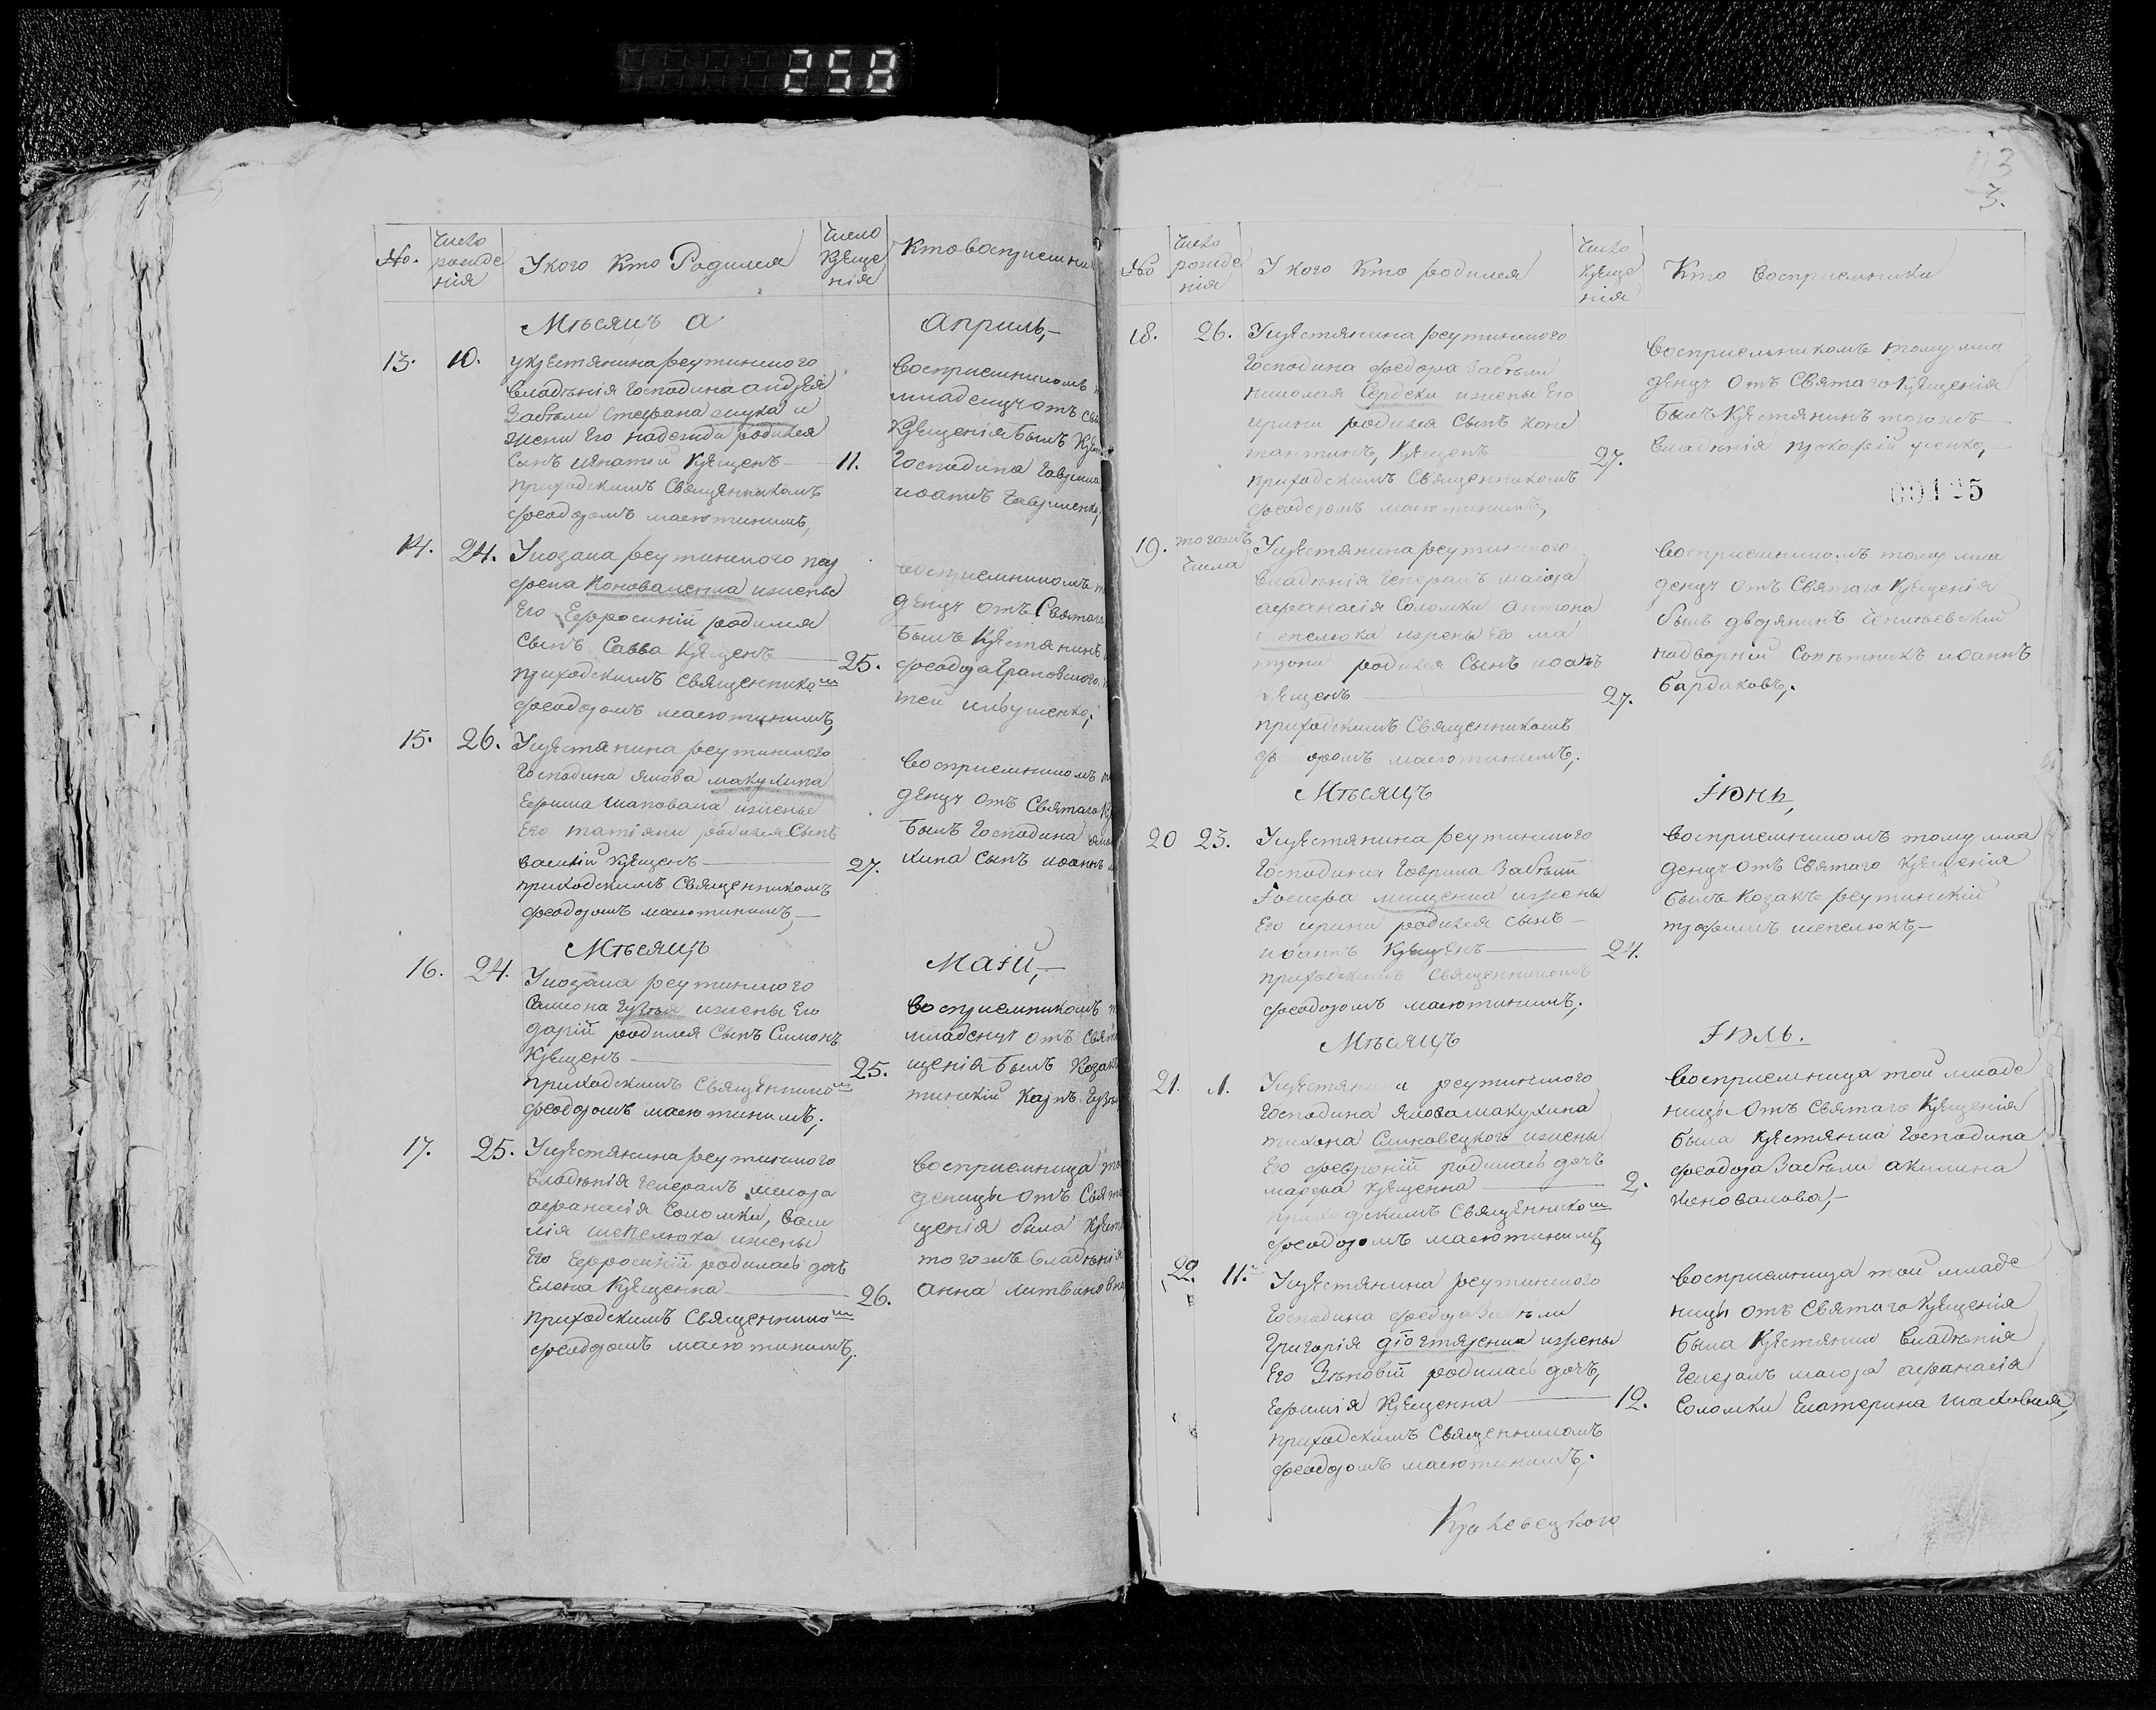 258
No.
Число рожденія
У кого Кто Родился
Число Креще нія
Кто восприемни
Мѣсяцъ а
априль,
13. 10.
У крестянина реутинского
владѣнія Господина андрея
Забѣли Стефана
жени Его надежди родился
Сынъ игнатий Крещенъ 11.
приходскимъ Священникомъ
феодоромъ масютинимъ,
восприемникомъ
младенцу отъ свя
Крещенія былъ Крес
Господина Гаврила
иоаннъ Гавриленко,
14. 24.
У козака реутинского пар
фена Коноваленка изжены
Его Ефросиній родился
Сынъ Савва Крещенъ 25.
приходскимъ священнико м
феодоромъ масютинимъ,
восприемникомъ
денцу отъ Святаго
былъ Крестянинъ
феодора Грановского
15. 26.
У крестянина реутинского
Господина якова макухина
Ефима шаповала изжены
Его татіяни родился Сынъ
василій Крещенъ 27.
приходскимъ Священникомъ
феодоромъ масютинимъ,
восприемникомъ
денцу отъ Святаго
былъ Господина
хина Сынъ иоаннъ
Мѣсяцъ
Маій,
16. 24.
У козака реутинского
Симона изжены Его
дарій родился Сынъ Симонъ
Крещенъ 25.
приходскимъ Священнико м
феодоромъ масютинимъ,
восприемникомъ
младенцу отъ Свят
щенія былъ Козакъ
тинскій Карпъ
17. 25.
У крестянина реутинского
владѣнія генералъ маиора
афанасія Соломки, васи
лія шепелюка изжены
Его Ефросиній родилась дочъ
Елена Крещенна 26.
приходскимъ Священнико м
феодоромъ масютинимъ,
восприемница
деницы отъ Свят
щенія была Крест
тогожъ владѣнія
анна литвиновна
3
3.
No
Число рожде нія
У кого Кто родился
Число Креще нія
Кто восприемники
18. 26.
У крестянина реутинского
Господина феодора Забѣли
николая Сердюки изжены Его
ирини родился Сынъ Конс
тантинъ, Крещенъ 27.
приходскимъ Священникомъ
феодоромъ масютинимъ,
восприемникомъ тому мла
денцу отъ Святаго Крещенія
былъ Крестянинъ тогожъ
владѣнія прокофій
19. тогожъ Числа
У крестянина реутинского
владѣнія генералъ маіора
афанасія Соломки антона
шепелюка изжены Его ма
трони родился Сынъ иоанъ
Крещенъ 27.
приходскимъ Священникомъ
феодоромъ масютинимъ,
восприемникомъ тому мла
денцу отъ Святаго Крещенія
былъ дворянинъ
надворній Совѣтникъ иоаннъ
бардаковъ.
Мѣсяцъ
Іюнь,
20 23.
У крестянина реутинского
Господина Гаврила Забѣли
мищенка изжены
Его ирини родился сынъ
иоаннъ Крещенъ 24.
приходскимъ Священникомъ
феодоромъ масютинимъ,
восприемникомъ тому мла
денцу отъ Святаго Крещенія
былъ Козакъ реутинскій
трофимъ шепелюкъ,
Мѣсяцъ
Іюль.
21. 1.
У крестянина реутинского
Господина якова макухина
тихона Слиховецкого изжены
Его февроній родилась дочъ
марфа Крещенна 2.
приходскимъ Священнико м
феодоромъ масютинимъ
восприемница той младе
ницы отъ Святаго Крещенія
была Крестянка Господина
феодора Забѣли акилина
Коновалова,
22. 11.
У крестянина реутинского
Господина феодора Забѣли
Григорія дюгтяренка изжены
Его Зѣновій родилась дочъ,
Ефимія Крещенна 12.
приходскимъ Священникомъ
феодоромъ масютинимъ.
восприемница той младе
ницы отъ Святаго Крещенія
была Крестянка владѣнія
Генералъ маіора афанасія
Соломки Екатерина